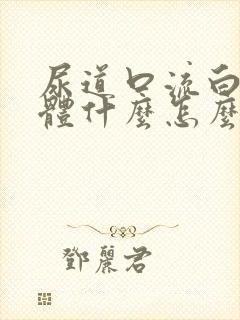 尿道口流白
體什麼怎麼
鄧麗君